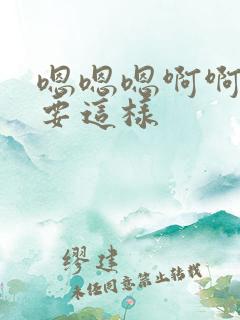 嗯嗯嗯啊啊
要這樣
缪建
未经同意禁止转载